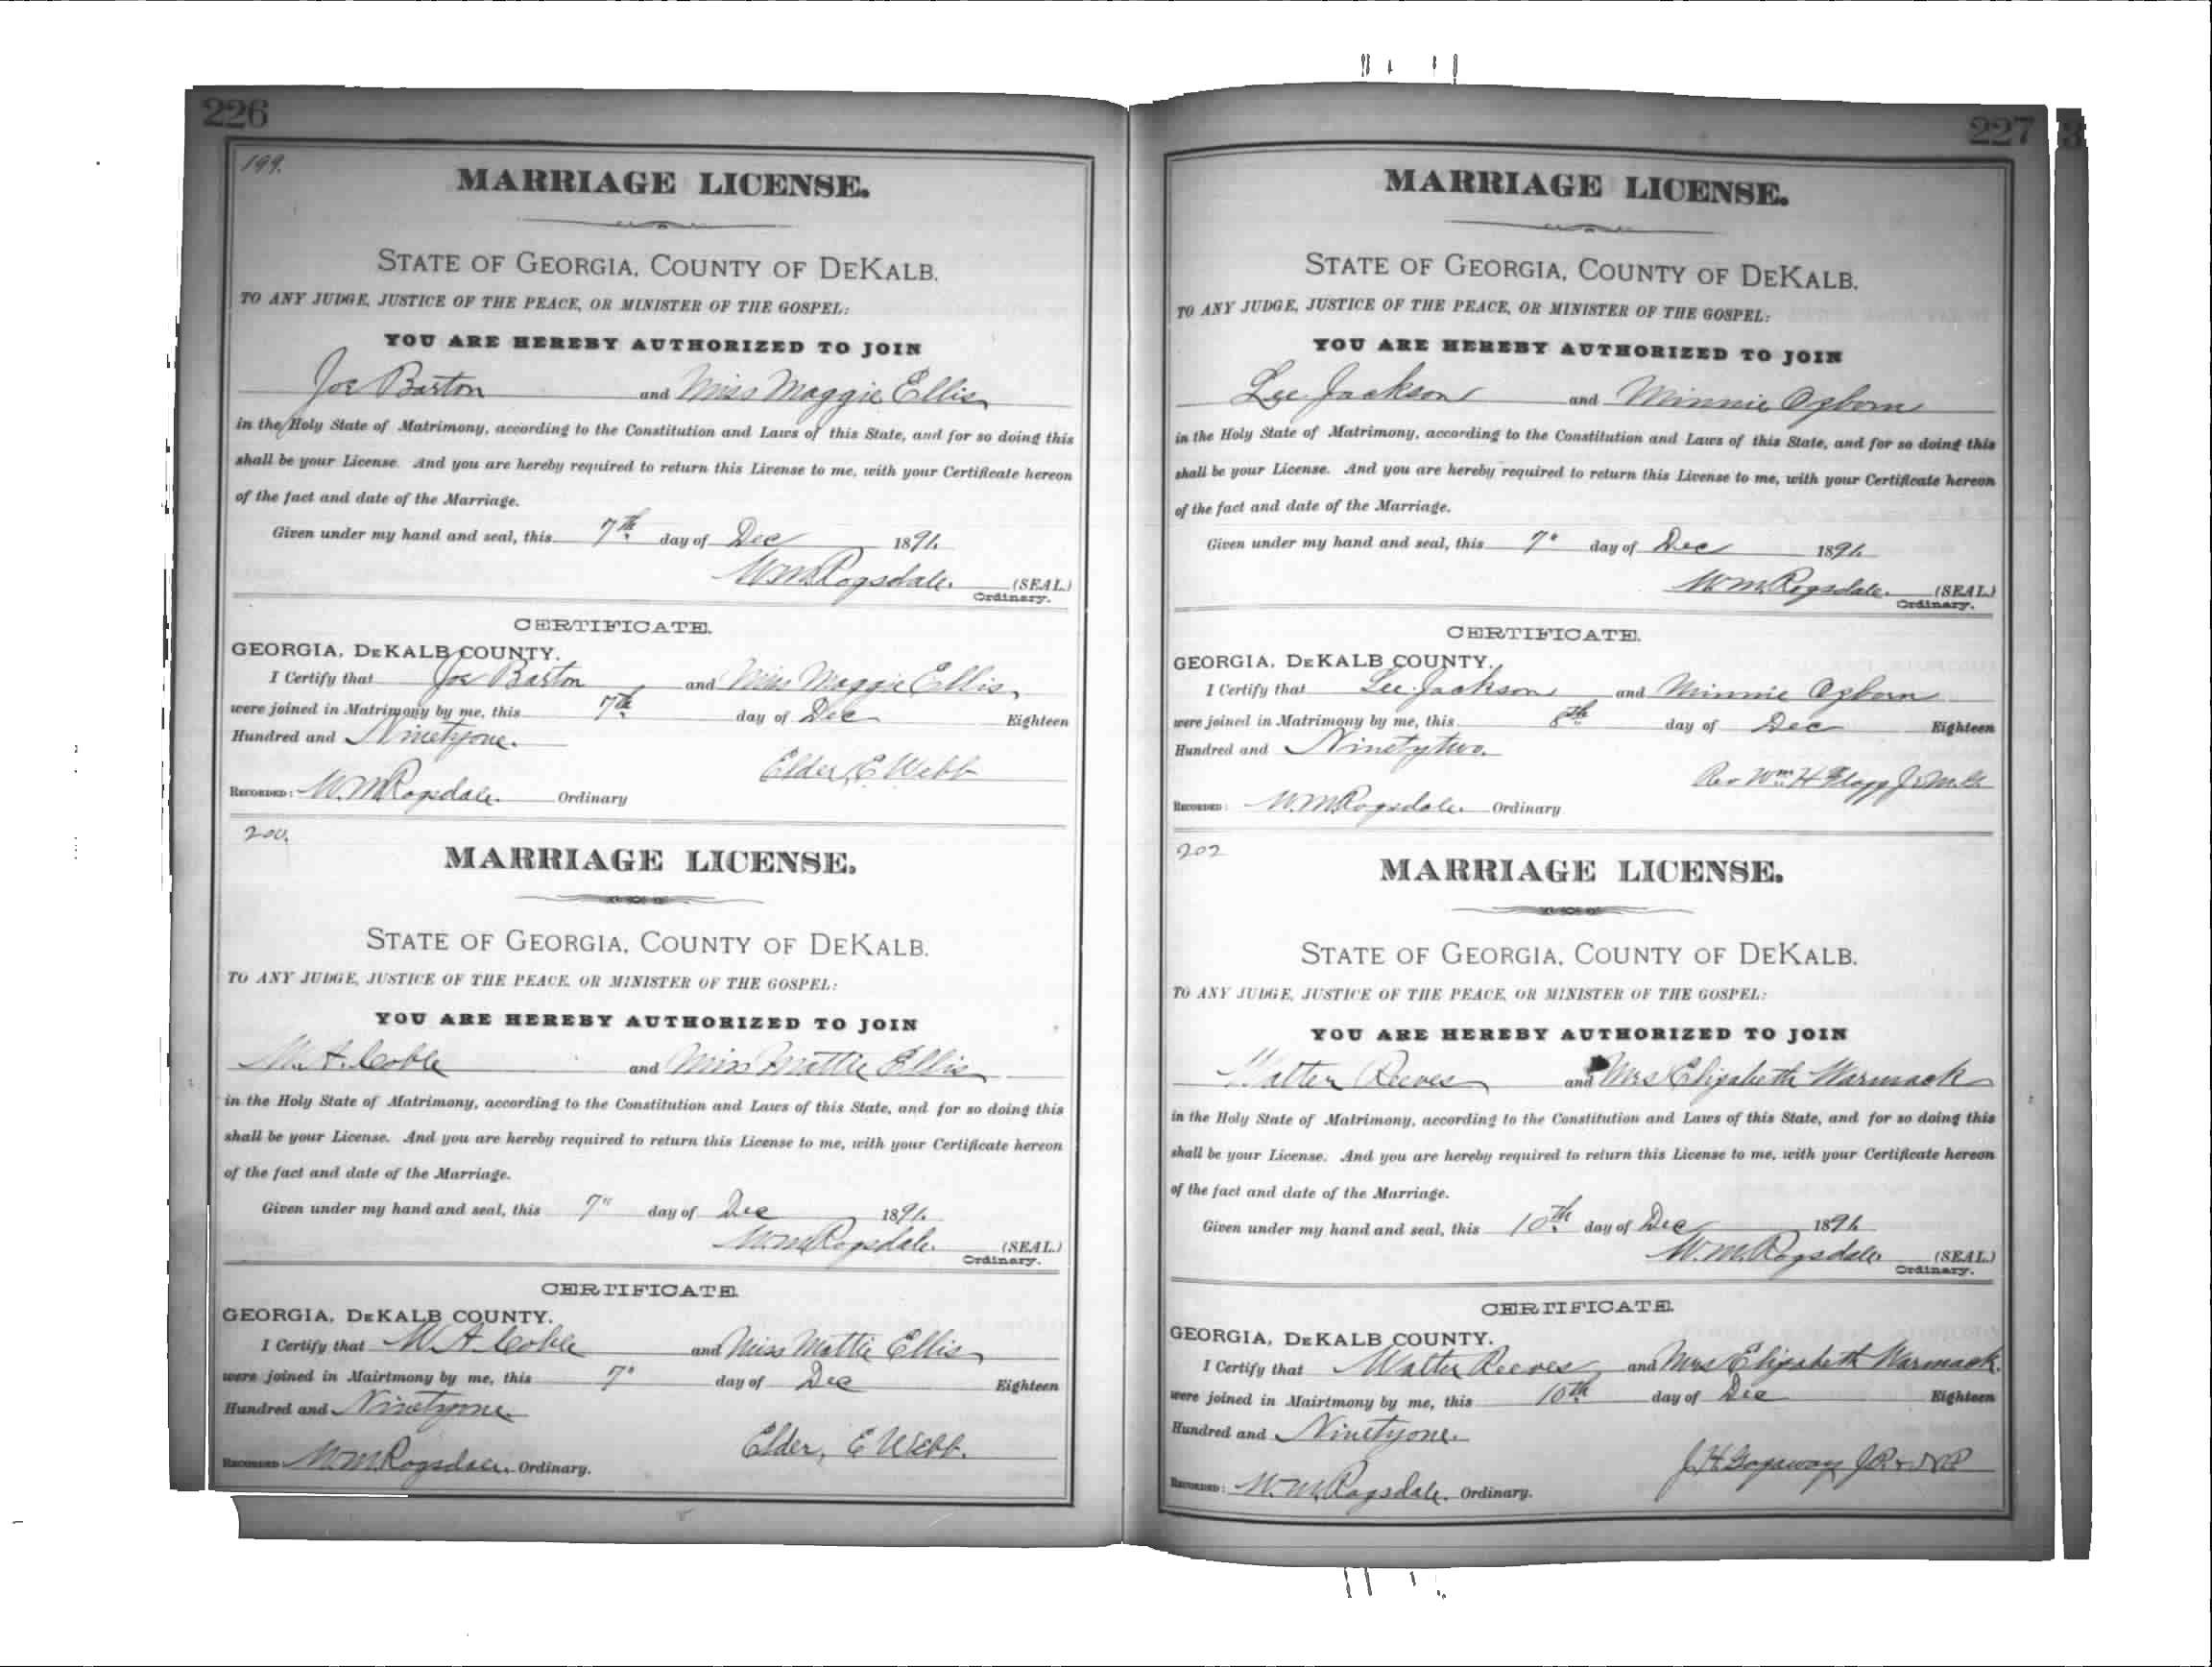 226
199.
MARRIAGE LICENSE.
STATE OF GEORGIA, COUNTY OF DEKALB.
TO ANY JUDGE, JUSTICE OF THE PEACE, OR MINISTER OF THE GOSPEL:
YOU ARE HEREBY AUTHORIZED TO JOIN
Joe Barton and Miss Maggie Ellis
in the Holy State of Matrimony, according to the Constitution and Laws of this State, and for so doing this
shall be your License. And you are hereby required to return this License to me, with your Certificate hereon
of the fact and date of the Marriage.
Given under my hand and seal, this 7th day of Dec 1891.
W.M. Ragsdale. (SEAL.)
Ordinary.
CERTIFICATE.
GEORGIA, DEKALB COUNTY.
I Certify that Joe Barton and Miss Maggie Ellis,
were joined in Matrimony by me, this 7th day of Dec Eighteen
Hundred and Ninetyone.
Elder, E Webb
RECORDED: W.M. Ragsdale. Ordinary
200.
MARRIAGE LICENSE.
STATE OF GEORGIA, COUNTY OF DEKALB.
TO ANY JUDGE, JUSTICE OF THE PEACE, OR MINISTER OF THE GOSPEL:
YOU ARE HEREBY AUTHORIZED TO JOIN
M. A. Coble and Miss Mattie Ellis
in the Holy State of Matrimony, according to the Constitution and Laws of this State, and for so doing this
shall be your License. And you are hereby required to return this License to me, with your Certificate hereon
of the fact and date of the Marriage.
Given under my hand and seal, this 7" day of Dec 1891.
W.M. Ragsdale. (SEAL.)
Ordinary.
CERTIFICATE.
GEORGIA, DEKALB COUNTY.
I Certify that M. A. Coble and Miss Mattie Ellis
were joined in Mairtmony by me, this 7" day of Dec Eighteen
Hundred and Ninetyone
Elder, E Webb.
RECORDED: W.M. Ragsdale. Ordinary.
227
MARRIAGE LICENSE.
STATE OF GEORGIA, COUNTY OF DEKALB.
TO ANY JUDGE, JUSTICE OF THE PEACE, OR MINISTER OF THE GOSPEL:
YOU ARE HEREBY AUTHORIZED TO JOIN
Lee Jackson and Minnie Ogborn
in the Holy State of Matrimony, according to the Constitution and Laws of this State, and for so doing this
shall be your License. And you are hereby required to return this License to me, with your Certificate hereon
of the fact and date of the Marriage.
Given under my hand and seal, this 7" day of Dec 1891.
W.M. Ragsdale. (SEAL.)
Ordinary.
CERTIFICATE.
GEORGIA, DEKALB COUNTY.
I Certify that Lee Jackson and Minnie Ogborn
were joined in Matrimony by me, this 8th day of Dec Eighteen
Hundred and Ninetytwo.
Rev Wm H Flagg
RECORDED: W.M. Ragsdale. Ordinary
202
MARRIAGE LICENSE.
STATE OF GEORGIA, COUNTY OF DEKALB.
TO ANY JUDGE, JUSTICE OF THE PEACE, OR MINISTER OF THE GOSPEL:
YOU ARE HEREBY AUTHORIZED TO JOIN
Walter Reeves and Mrs Elizabeth Warmack
in the Holy State of Matrimony, according to the Constitution and Laws of this State, and for so doing this
shall be your License. And you are hereby required to return this License to me, with your Certificate hereon
of the fact and date of the Marriage.
Given under my hand and seal, this 10th day of Dec 1891.
W.M. Ragsdale (SEAL.)
Ordinary.
CERTIFICATE.
GEORGIA, DEKALB COUNTY.
I Certify that Walter Reeves and Mrs Elizabeth Warmack.
were joined in Mairtmony by me, this 10th day of Dec Eighteen
Hundred and Ninetyone.
J. H.
RECORDED: W.M. Ragsdale. Ordinary.